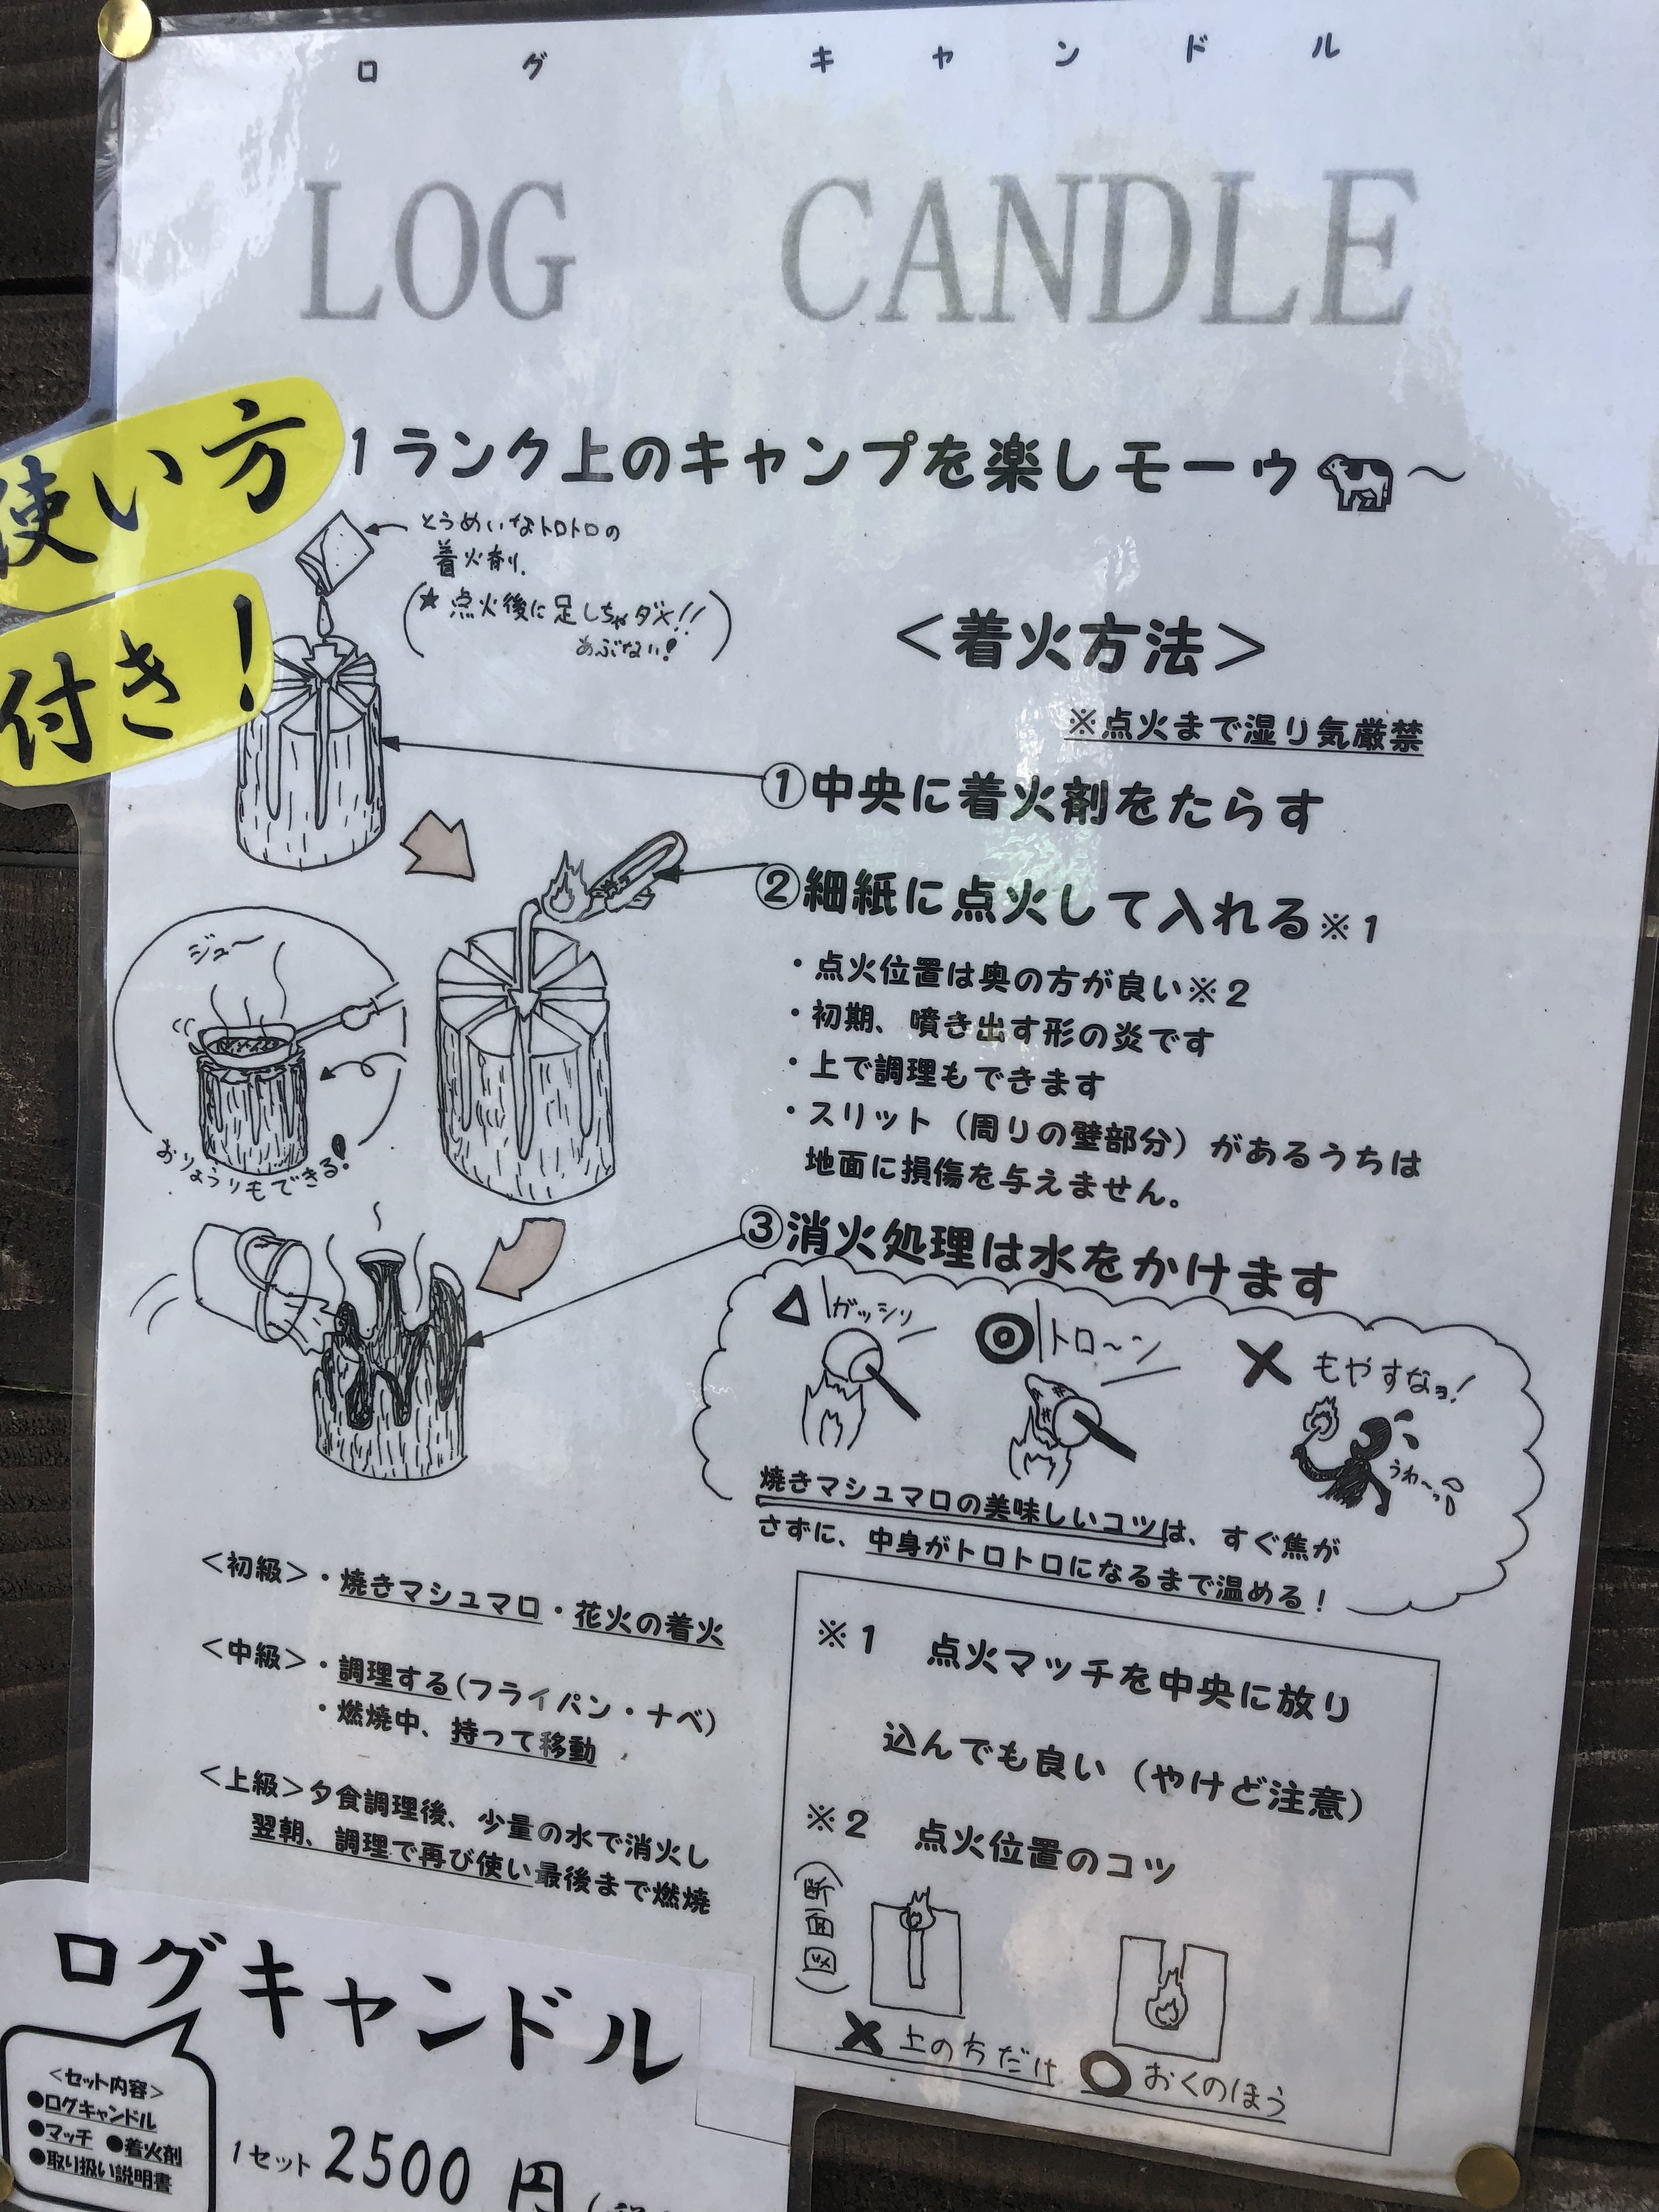 ログ キャンドル
LOG CANDLE
使い方
付き!
1ランク上のキャンプを楽しモーゥ～
とうめいなトロトロの
着火剤。
(★点火後に足しちゃダメ!!
あぶない!)
＜着火方法＞
※点火まで湿り気厳禁
①中央に着火剤をたらす
②細紙に点火して入れる※1
・点火位置は奥の方が良い※2
・初期、噴き出す形の炎です
・上で調理もできます
・スリット（周りの壁部分）があるうちは
地面に損傷を与えません。
ジュ～
おりょうりもできる!
③消火処理は水をかけます
△ ガッシリ
◎ トロ～ン
✕ もやすなョ!
うわ～っ
焼きマシュマロの美味しいコツは、すぐ焦が
さずに、中身がトロトロになるまで温める！
＜初級＞・焼きマシュマロ・花火の着火
＜中級＞・調理する(フライパン・ナベ)
・燃焼中、持って移動
＜上級＞夕食調理後、少量の水で消火し
翌朝、調理で再び使い最後まで燃焼
※1 点火マッチを中央に放り
込んでも良い（やけど注意）
※2 点火位置のコツ
(断面図)
✕ 上の方だけ
○ おくのほう
ログキャンドル
＜セット内容＞
●ログキャンドル
●マッチ ●着火剤
●取り扱い説明書
1セット 2500円